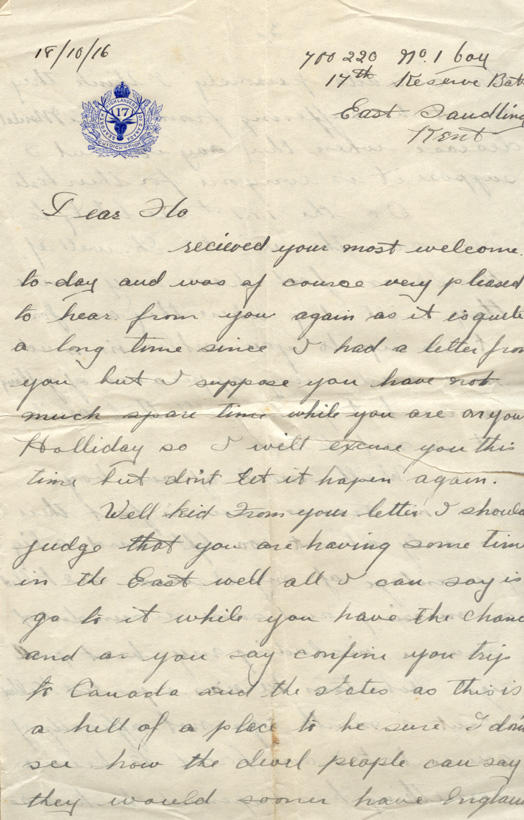 18/10/16
700220 No. 1 Coy
17th Reserve Bat
East Sandling
Kent
17
Dear Flo
recieved your most welcome
to-day and was of course very pleased
to hear from you again as it is quite
a long time since I had a letter from
you but I suppose you have not
much spare time while you are on you
Holliday so I will excuse you this
time but don't let it hapen again.
Well kid From your letter I should
judge that you are having some time
in the East well all I can say is
go to it while you have the chanc
and as you say confine you trip
to Canada and the states as this is
a hell of a place to be sure I don
see how the devil people can say
they would sooner have Englan